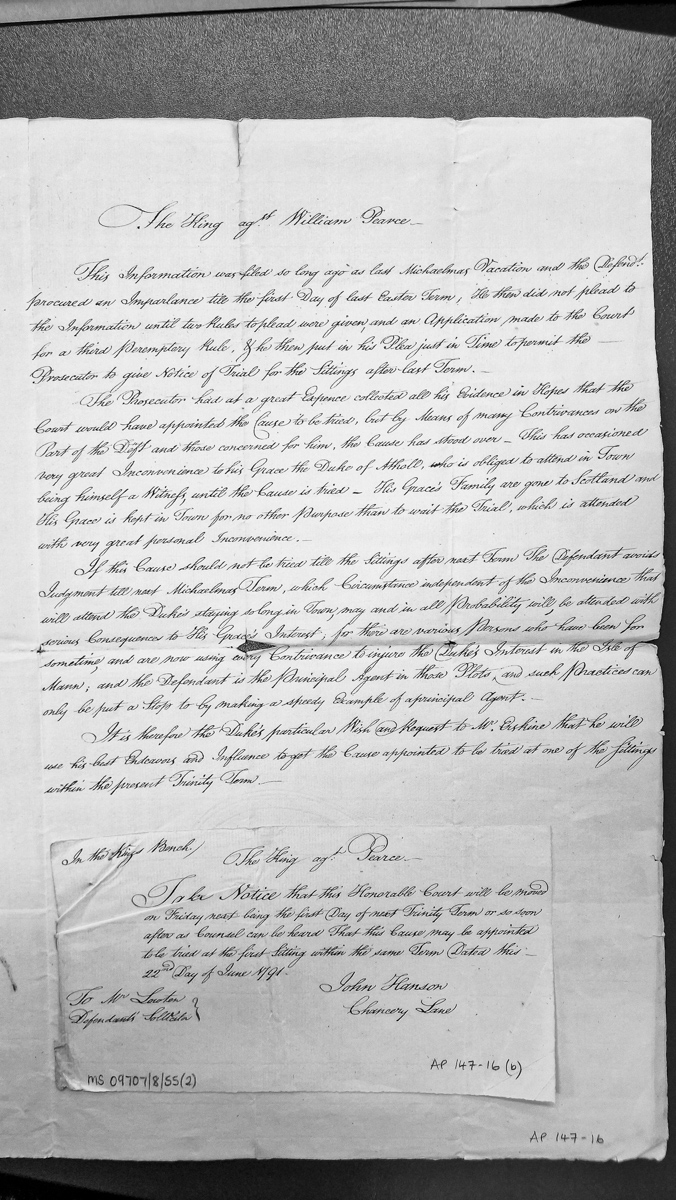 The King agst. William Pearce
This Information was filed so long ago as last Michaelmas Vacation and the Defendt.
procured an Imparlance till the first Day of last Easter Term, He then did not plead to
the Information until two Rules to plead were given and an Application made to the Court
for a third Peremptory Rule, & he then put in his Plea just in Time to permit the —
Prosecutor to give Notice of Trial for the Sittings after last Term. —
The Prosecutor had at a great Expence collected all his Evidence in Hopes that the
Court would have appointed the Cause to be tried, but by Means of many Contrivances on the
Part of the Deft. and those concerned for him, the Cause has stood over — This has occasioned
very great Inconvenience to his Grace the Duke of Atholl, who is obliged to attend in Town
being himself a Witness, until the Cause is tried — His Grace's Family are gone to Scotland and
His Grace is kept in Town for no other Purpose than to wait the Trial, which is attended
with very great personal Inconvenience. —
If this Cause should not be tried till the Sittings after next Term The Defendant avoids
Judgment till next Michaelmas Term, which Circumstance independent of the Inconvenience that
will attend the Duke's staying so long in Town, may and in all Probability will be attended with
serious Consequence to His Grace's Interest, for there are various Persons who have been for
sometime, and are now using every Contrivance to injure the Duke's Interest in the Isle of
Mann; and the Defendant is the Principal Agent in those Plots, and such Practices can
only be put a Stop to by making a speedy Example of a principal Agent. —
It is therefore the Duke's particular Wish and Request to Mr. Erskine that he will
use his best Endeavors and Influence to get the Cause appointed to be tried at one of the Sittings
within the present Trinity Term —
In the Kings Bench
The King agt. Pearce —
Take Notice that this Honorable Court will be moved
on Friday next being the first Day of next Trinity Term or so soon
after as Counsel can be heard That this Cause may be appointed
to be tried at the first Sitting within the same Term Dated this —
22nd Day of June 1791 —
John Hanson
Chancery Lane
To Mr. Lowten
Defendants
MS 09707/8/55(2)
AP 147-16 (b)
AP 147-16